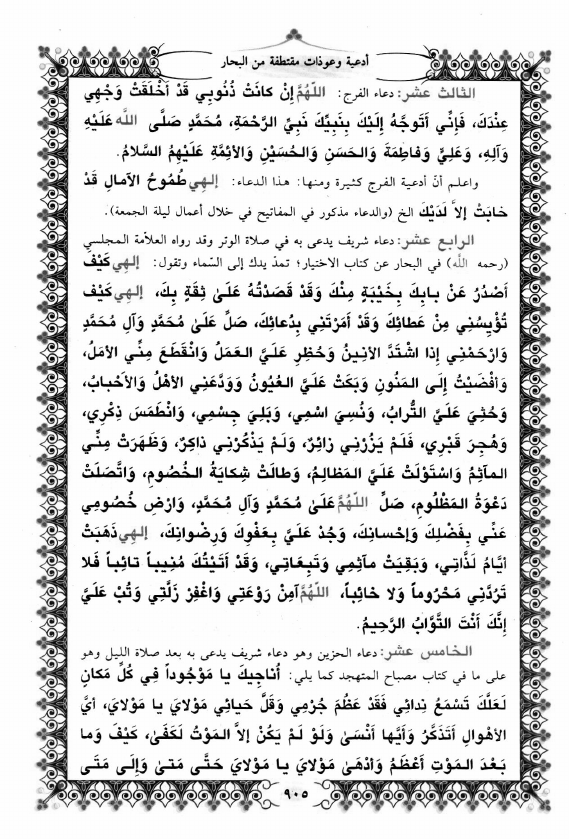 أدعية وعوذات مقتطفة من البحار
الثالث عشر: دعاء الفرج: اللّهُمَّ إِنْ كانَتْ ذُنُوبِي قَدْ أَخْلَقَتْ وَجْهِي
عِنْدَكَ، فَإِنِّي أَتَوَجَّهُ إِلَيْكَ بِنَبِيِّكَ نَبِيِّ الرَّحْمَةِ، مُحَمَّدٍ صَلَّى اللهُ عَلَيْهِ
وَآلِهِ، وَعَلِيٍّ وَفاطِمَةَ وَالحَسَنِ وَالحُسَيْنِ وَالأئِمَّةِ عَلَيْهِمُ السَّلامُ.
واعلم أنّ أدعية الفرج كثيرة ومنها: هذا الدعاء: إلهِي طُمُوحُ الآمالِ قَدْ
خابَتْ إلاَّ لَدَيْكَ الخ (والدعاء مذكور في المفاتيح في خلال أعمال ليلة الجمعة).
الرابع عشر: دعاء شريف يدعى به في صلاة الوتر وقد رواه العلاّمة المجلسي
(رحمه الله) في البحار عن كتاب الاختيار؛ تمدّ يدك إلى السّماء وتقول: إلهِي كَيْفَ
أَصْدُرُ عَنْ بابِكَ بِخَيْبَةٍ مِنْكَ وَقَدْ قَصَدْتُهُ عَلىٰ ثِقَةٍ بِكَ، إلهِي كَيْفَ
تُؤْيِسُنِي مِنْ عَطائِكَ وَقَدْ أَمَرْتَنِي بِدُعائِكَ، صَلِّ عَلىٰ مُحَمَّدٍ وَآلِ مُحَمَّدٍ
وَارْحَمْنِي إذا اشْتَدَّ الأنِينُ وَحُظِرِ عَلَيَّ العَمَلُ وَانْقَطَعَ مِنِّي الأمَلُ،
وَأَفْضَيْتُ إِلَى المَنُونِ وَبَكَتْ عَلَيَّ العُيُونُ وَوَدَّعَنِي الأهْلُ وَالأحْبابُ،
وَحُثِيَ عَلَيَّ التُّرابُ، وَنُسِيَ اسْمِي، وَبَلِيَ جِسْمِي، وَانْطَمَسَ ذِكْرِي،
وَهُجِرَ قَبْرِي، فَلَمْ يَزُرْنِي زائِرٌ، وَلَمْ يَذْكُرْنِي ذاكِرٌ، وَظَهَرَتْ مِنِّي
المَآثِمُ وَاسْتَوْلَتْ عَلَيَّ المَظالِمُ، وَطالَتْ شِكايَةُ الخُصُومِ، وَاتَّصَلَتْ
دَعْوَةُ المَظْلُومِ، صَلِّ اللّهُمَّ عَلىٰ مُحَمَّدٍ وَآلِ مُحَمَّدٍ، وَارْضِ خُصُومِي
عَنِّي بِفَضْلِكَ وَإحْسانِكَ، وَجُدْ عَلَيَّ بِعَفْوِكَ وَرِضْوانِكَ، إلهِي ذَهَبَتْ
أيَّامُ لَذَّاتِي، وَبَقِيَتْ مآثِمِي وَتَبِعاتِي، وَقَدْ أَتَيْتُكَ مُنِيباً تائِباً فَلا
تَرُدَّنِي مَحْرُوماً وَلا خائِباً، اللّهُمَّ آمِنْ رَوْعَتِي وَاغْفِرْ زَلَّتِي وَتُبْ عَلَيَّ
إِنَّكَ أَنْتَ التَّوَّابُ الرَّحِيمُ.
الخامس عشر: دعاء الحزين وهو دعاء شريف يدعى به بعد صلاة الليل وهو
على ما في كتاب مصباح المتهجد كما يلي: أُناجِيكَ يا مَوْجُوداً فِي كُلِّ مَكانٍ
لَعَلَّكَ تَسْمَعُ نِدائِي فَقَدْ عَظُمَ جُرْمِي وَقَلَّ حَيائِي مَوْلايَ يا مَوْلايَ، أيَّ
الأهْوالِ أَتَذَكَّرُ وَأَيَّها أَنْسىٰ وَلَوْ لَمْ يَكُنْ إلاَّ المَوْتُ لَكَفىٰ، كَيْفَ وَما
بَعْدَ المَوْتِ أَعْظَمُ وَأَدْهىٰ مَوْلايَ يا مَوْلايَ حَتَّى مَتىٰ وَإلى مَتَى
٩٠٥